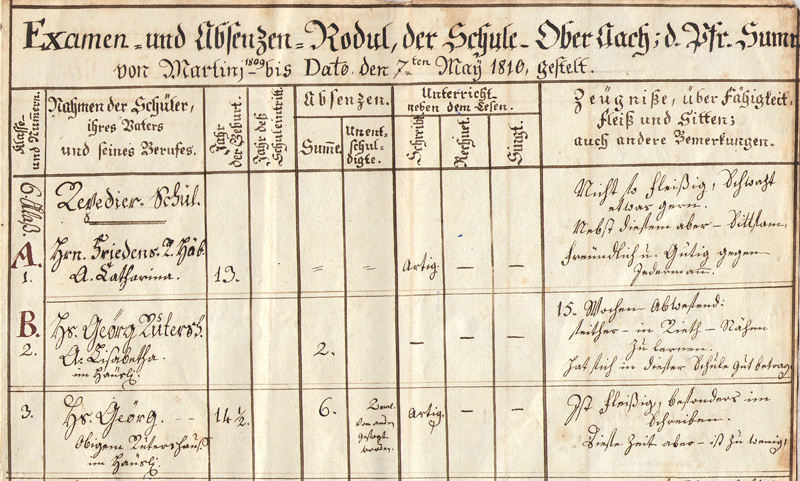 Examen - und Absenzen - Rodul, der Schule - Ober Aach; d. Pfr. Sumr
von Martinj 1809 bis Dato. den 7ten May 1810, gestelt.
Klasse und Num̄ern.
Nahmen der Schüler,
ihres Vaters
und seines Berufes.
Jahr der Geburt.
Jahr deß Schuleintritt.
Absenzen.
Sum̄e.
Unent-
schul-
digte.
Unterricht
neben dem Lesen.
Schreibt.
Rechnet.
Singt.
Zeügniße, über Fähigkeit,
Fleiß und Sitten;
auch andere Bemerkungen.
6 Klaß
Repedier - Schül.
Nicht so fleißig, Schwazt
etwas gern.
Nebst diesem aber - Sittsam,
freündlich u. Gütig gegen
Jedermañ.
A.
1.
Hrn. Friedens. R. Häb.
A. Catharina.
13.
=
=
Artig.
—
—
B.
2.
Hs. Geörg Rütersh.
A. Lisabetha.
im Häusli.
2.
—
—
—
15. Wochen Abwesend:
seither - in Rieth - Nähen
zu lernen.
hat sich in dieser Schule Gut betrag
3.
Hs. Geörg.
Obigem Rütershaus
im Häusli.
14 ½.
6.
2 mal.
von
worden.
Artig.
—
—
Ist fleißig, besonders im
Schreiben.
Diese Zeit aber - ist zu wenig,